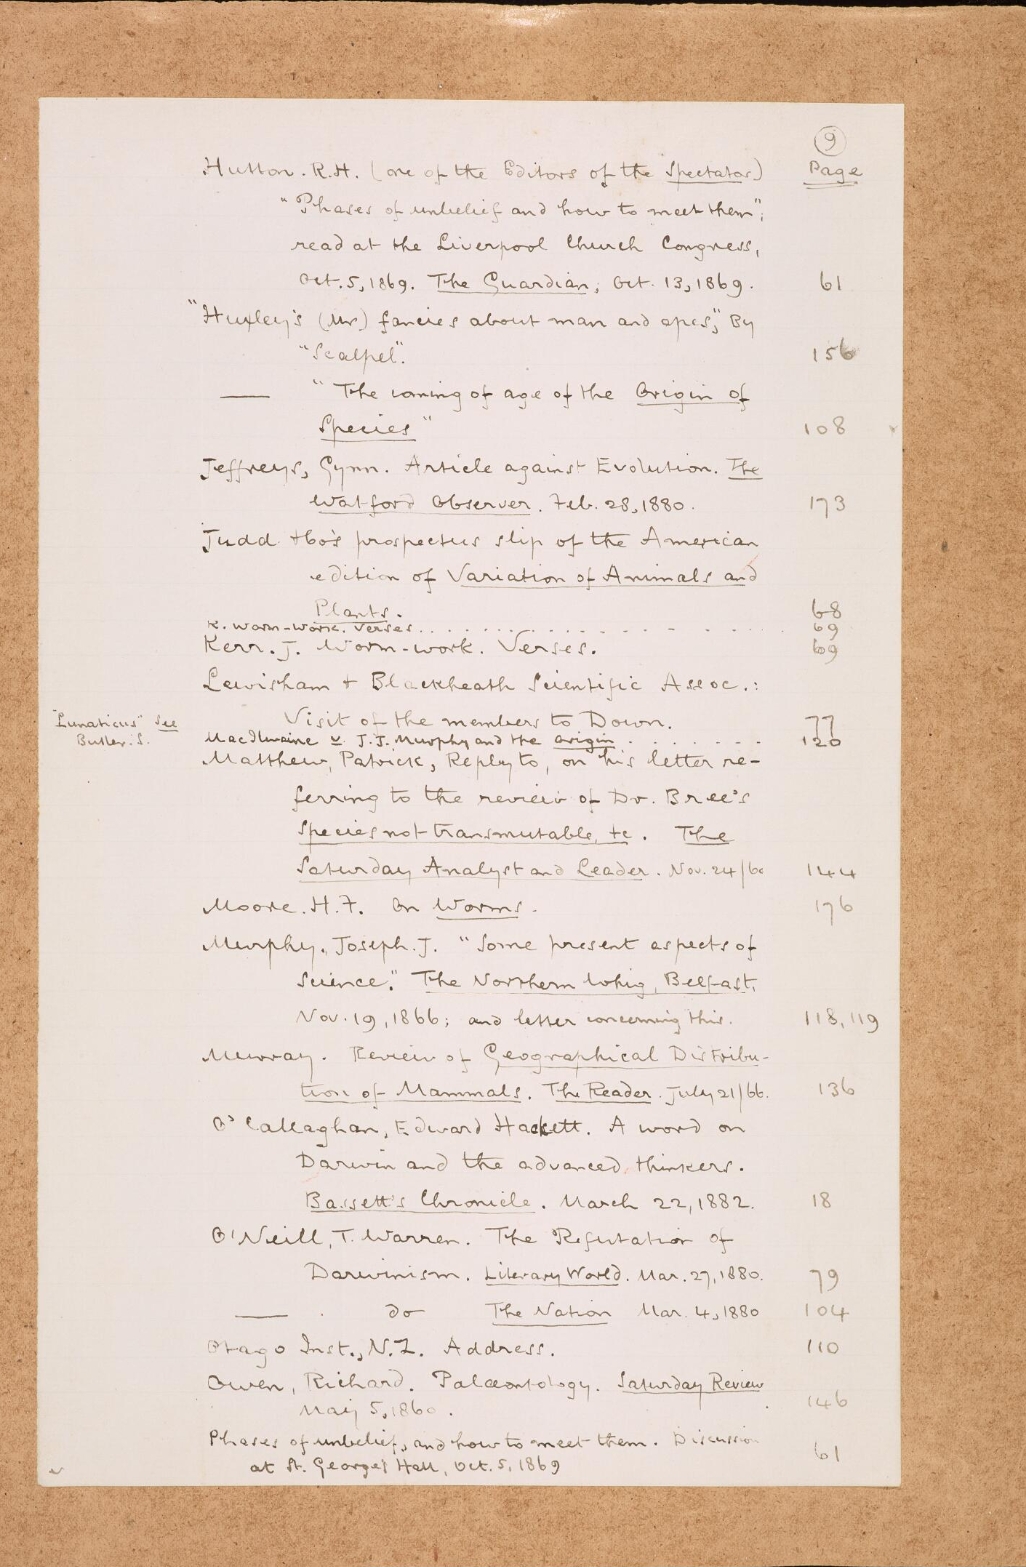 9
Hutton. R.H. (one of the Editors of the Spectator) Page
"Phases of unbelief and how to meet them";
read at the Liverpool Church Congress,
Oct. 5, 1869. The Guardian, Oct. 13, 1869. 61
"Huxley's (Mr) fancies about man and apes," By
"Scalpel". 156
— "The coming of age of the Origin of
Species" 108
Jeffreys, Gynn. Article against Evolution. The
Watford Observer. Feb. 28, 1880. 173
Judd & Co's prospectus slip of the American
edition of Variation of Animals and
Plants. 68
K. Worm-work. Verses . . . . . . . . . . . 69
Kerr. J. Worm-work. Verses. 69
Lewisham & Blackheath Scientific Assoc.:
Visit of the members to Down. 77
"Lunaticus" See
Butler. S.
MacIlwaine v. J.J. Murphy and the Origin . . . . . . . 120
Matthew, Patrick, Reply to, on his letter re-
ferring to the review of Dr. Bree's
Species not transmutable, &c. The
Saturday Analyst and Leader. Nov. 24/60 144
Moore. H.F. On Worms. 176
Murphy. Joseph. J. "Some present aspects of
Science." The Northern Whig, Belfast,
Nov. 19, 1866; and letter concerning this. 118, 119
Murray. Review of Geographical Distribu-
tion of Mammals. The Reader. July 21/66. 136
O'Callaghan, Edward Hackett. A word on
Darwin and the advanced thinkers.
Bassett's Chronicle. March 22, 1882. 18
O'Neill, T. Warren. The Refutation of
Darwinism. Literary World. Mar. 27, 1880. 79
— do The Nation Mar. 4, 1880 104
Otago Inst., N.Z. Address. 110
Owen, Richard. Palæontology. Saturday Review
May 5, 1860. 146
Phases of unbelief, and how to meet them. Discussion
at St. George's Hall, Oct. 5, 1869 61